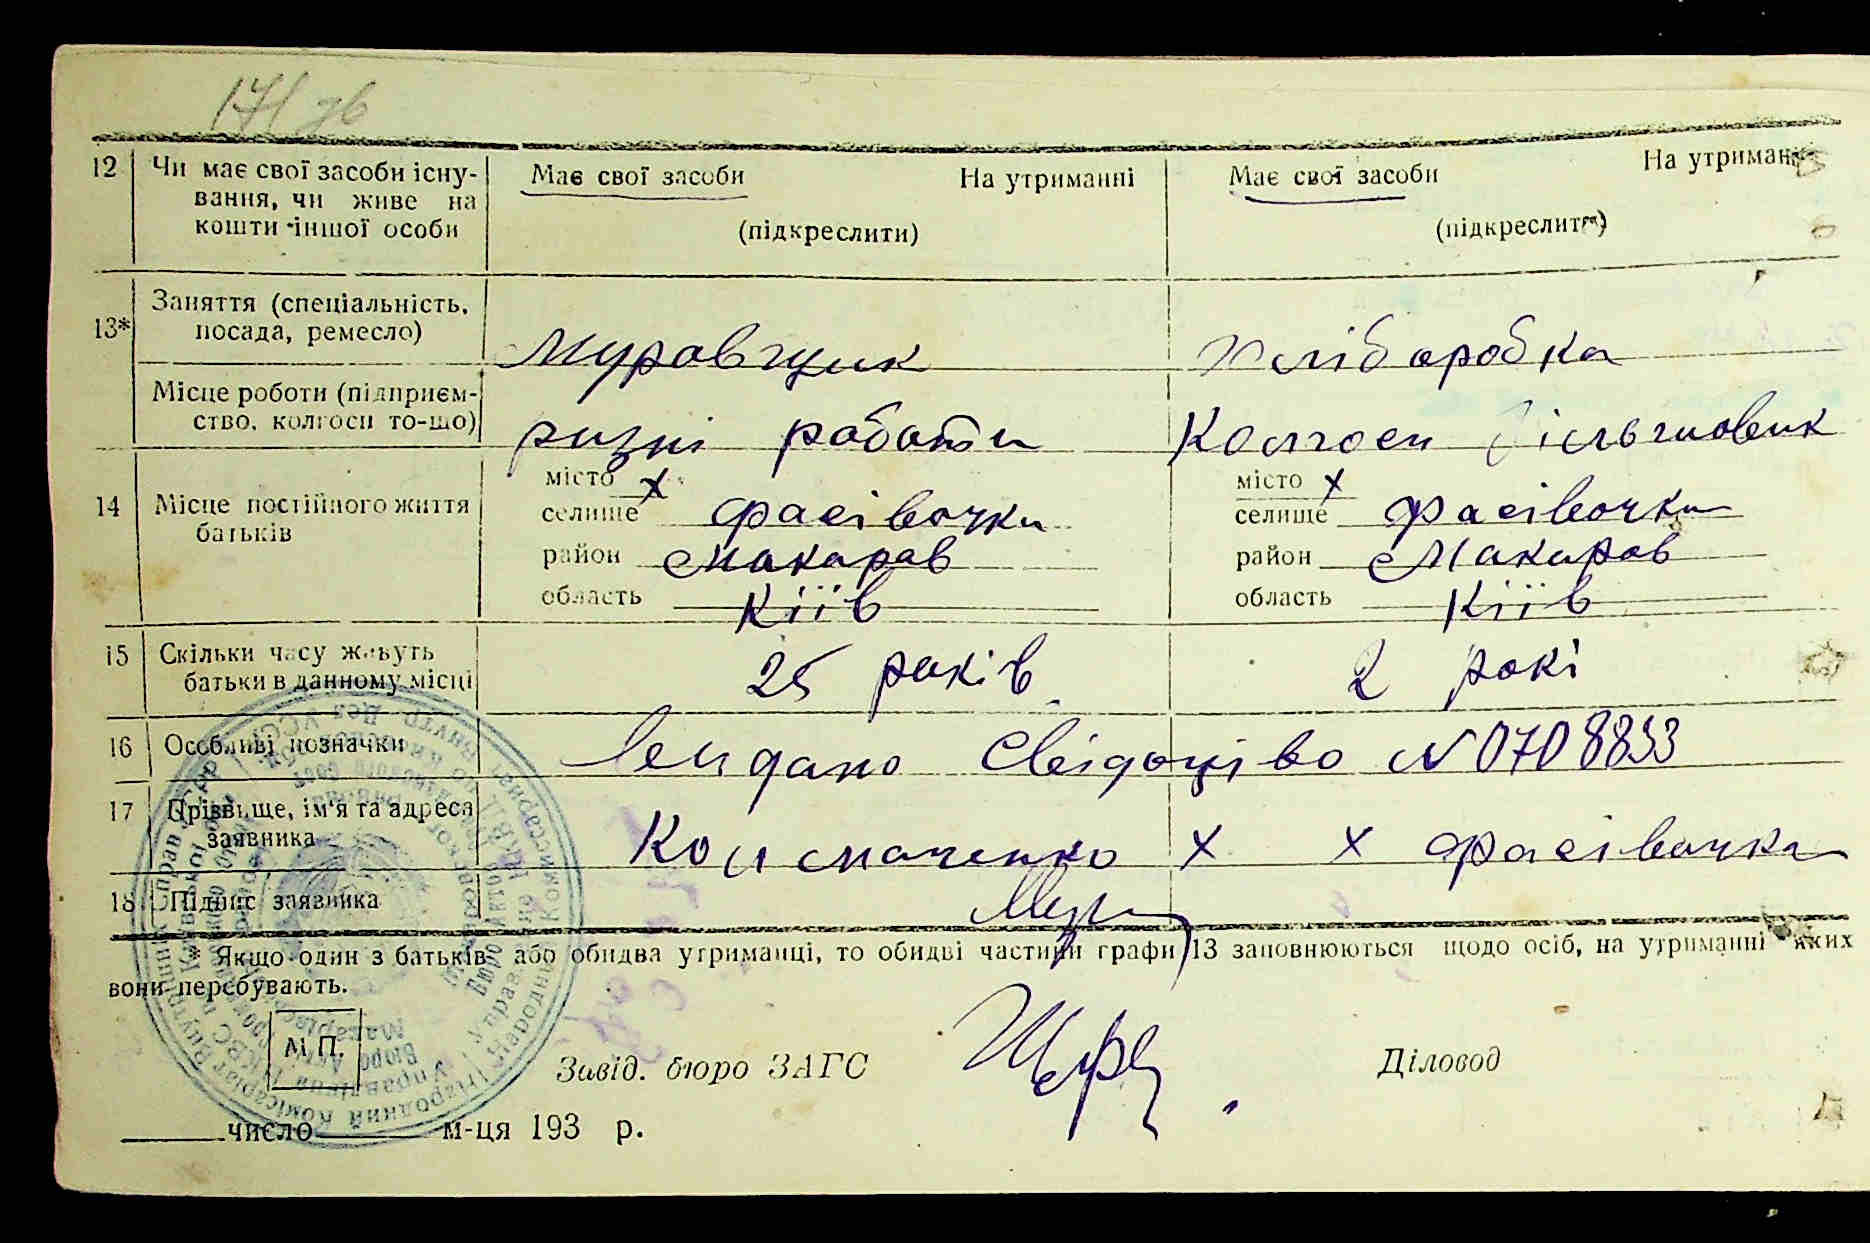 171 зв
12 Чи має свої засоби існу- Має свої засоби На утриманні Має свої засоби На утриман
вання, чи живе на
кошти іншої особи (підкреслити) (підкреслити)
Заняття (спеціальність,
13* посада, ремесло) Муровщик Хліборобка
Місце роботи (підприєм-
ство, колгосп то-що) ризні работи Колгосп Більшовик
місто х місто х
14 Місце постійного життя селище Фасівочка селище Фасівочка
батьків район Макаров район Макаров
область Кіїв область Кіїв
15 Скільки часу живуть 25 років 2 рокі
батьки в данному місці
16 Особливі позначки Видано Свідоцтво N 0708853
17 Прізвище, ім'я та адреса
заявника Колмаченко х х Фасівочка
18 Підпис заявника
* Якщо один з батьків або обидва утриманці, то обидві частини графи 13 заповнюються щодо осіб, на утриманні яких
вони перебувають.
М.П.
Завід. бюро ЗАГС Діловод
число м-ця 193 р.